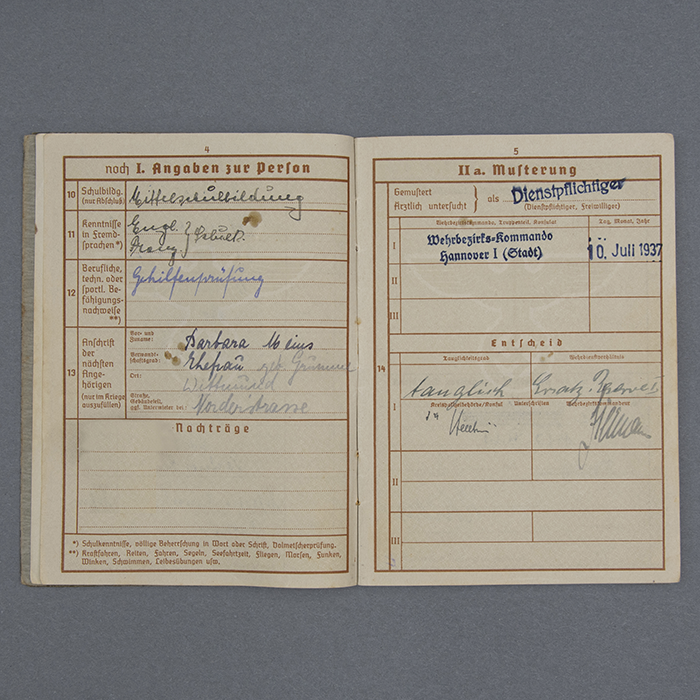 4
noch I. Angaben zur Person
10 Schulbildg. (nur Abschluß) Mittelschulbildung
11 Kenntnisse in Fremdsprachen *) Engl.
12 Berufliche, techn. oder sportl. Befähigungsnachweise **) Gehilfenprüfung
13 Anschrift der nächsten Angehörigen (nur im Kriege auszufüllen)
Vor- und Zuname: Barbara Meins
Verwandtschaftsgrad: Ehefrau geb.
Ort: Wittmund
Straße, Gebäudeteil, ggf. Untermieter bei: Norderstrasse
Nachträge
*) Schulkenntnisse, völlige Beherrschung in Wort oder Schrift, Dolmetscherprüfung.
**) Kraftfahren, Reiten, Fahren, Segeln, Seefahrtzeit, Fliegen, Morsen, Funken,
Winken, Schwimmen, Leibesübungen usw.
5
II a. Musterung
Gemustert
Ärztlich untersucht } als Dienstpflichtiger
(Dienstpflichtiger, Freiwilliger)
Wehrbezirkskommando, Truppenteil, Konsulat Tag, Monat, Jahr
I Wehrbezirks-Kommando
Hannover I (Stadt) 10. Juli 1937
II
III
Entscheid
14
Tauglichkeitsgrad Wehrdienstverhältnis
tauglich Ersatz-Reserve I
I Kreispolizeibehörde/Konsul Unterschriften Wehrbezirkskommandeur
II
III